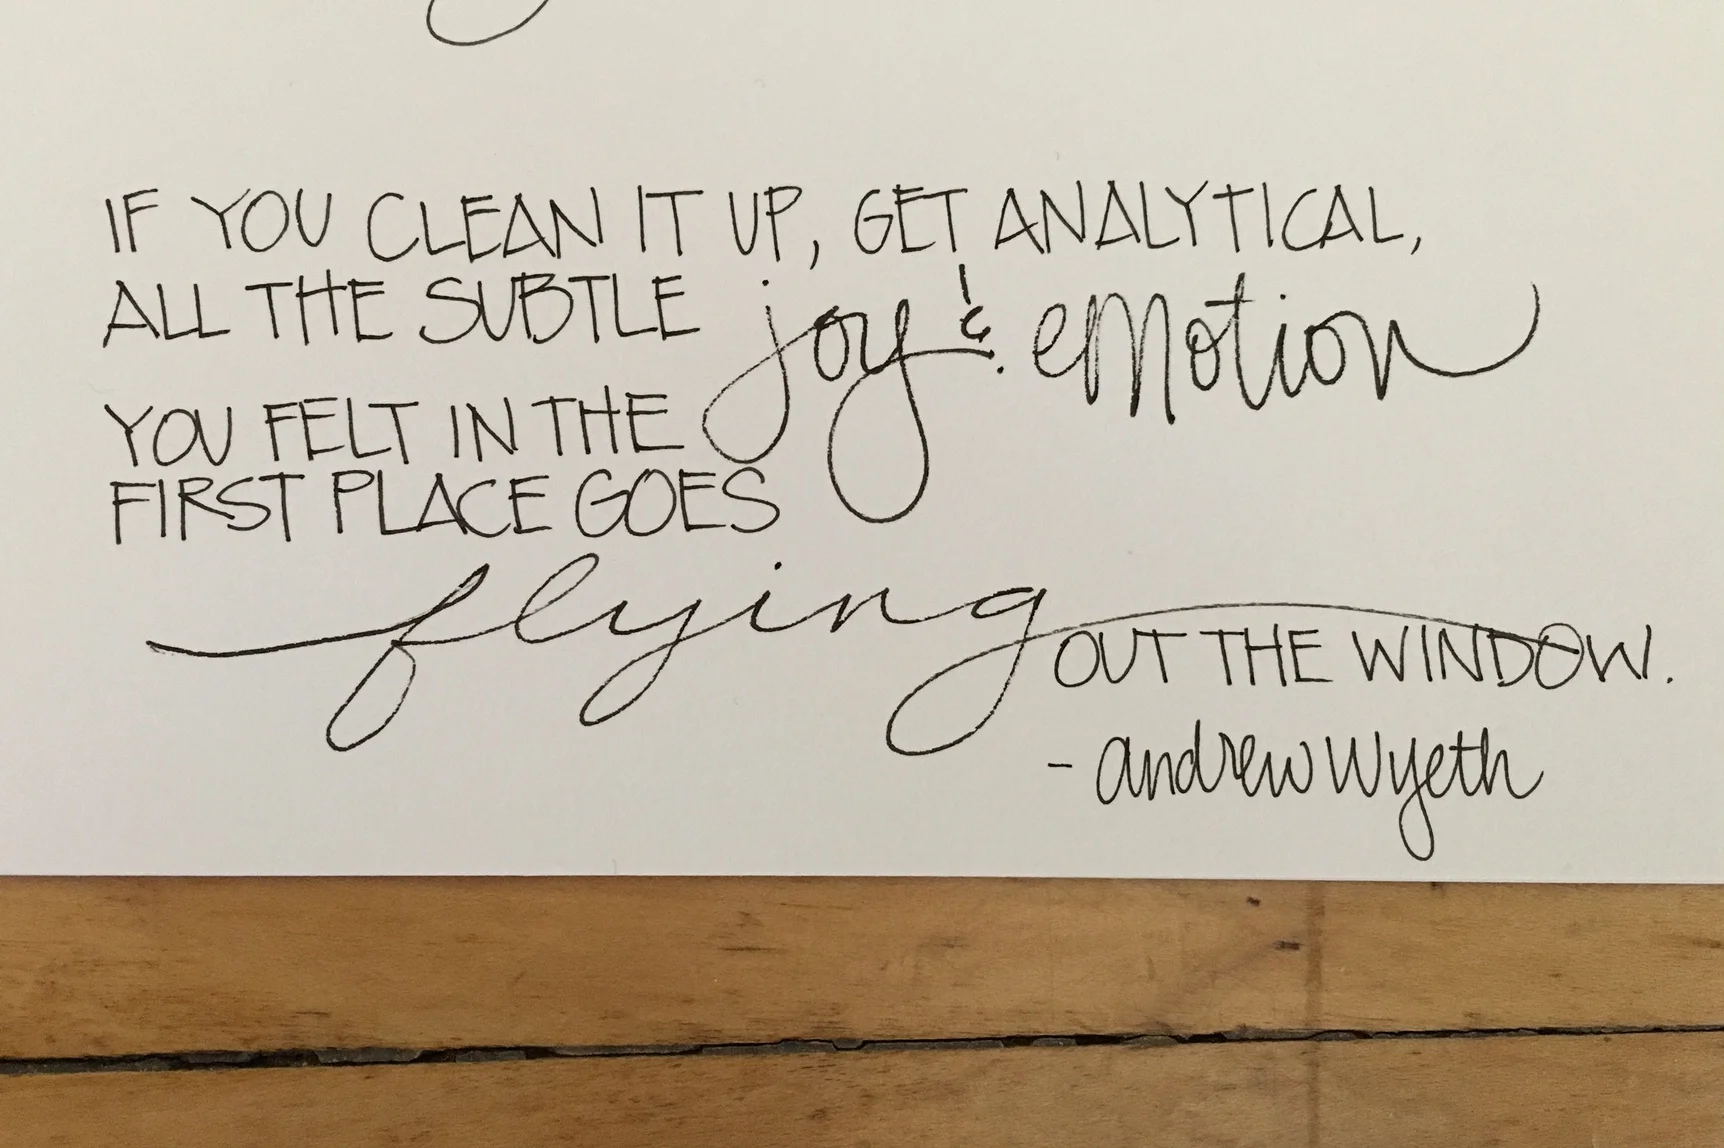 IF YOU CLEAN IT UP, GET ANALYTICAL,
ALL THE SUBTLE joy & emotion
YOU FELT IN THE
FIRST PLACE GOES
flying OUT THE WINDOW.
- andrew wyeth